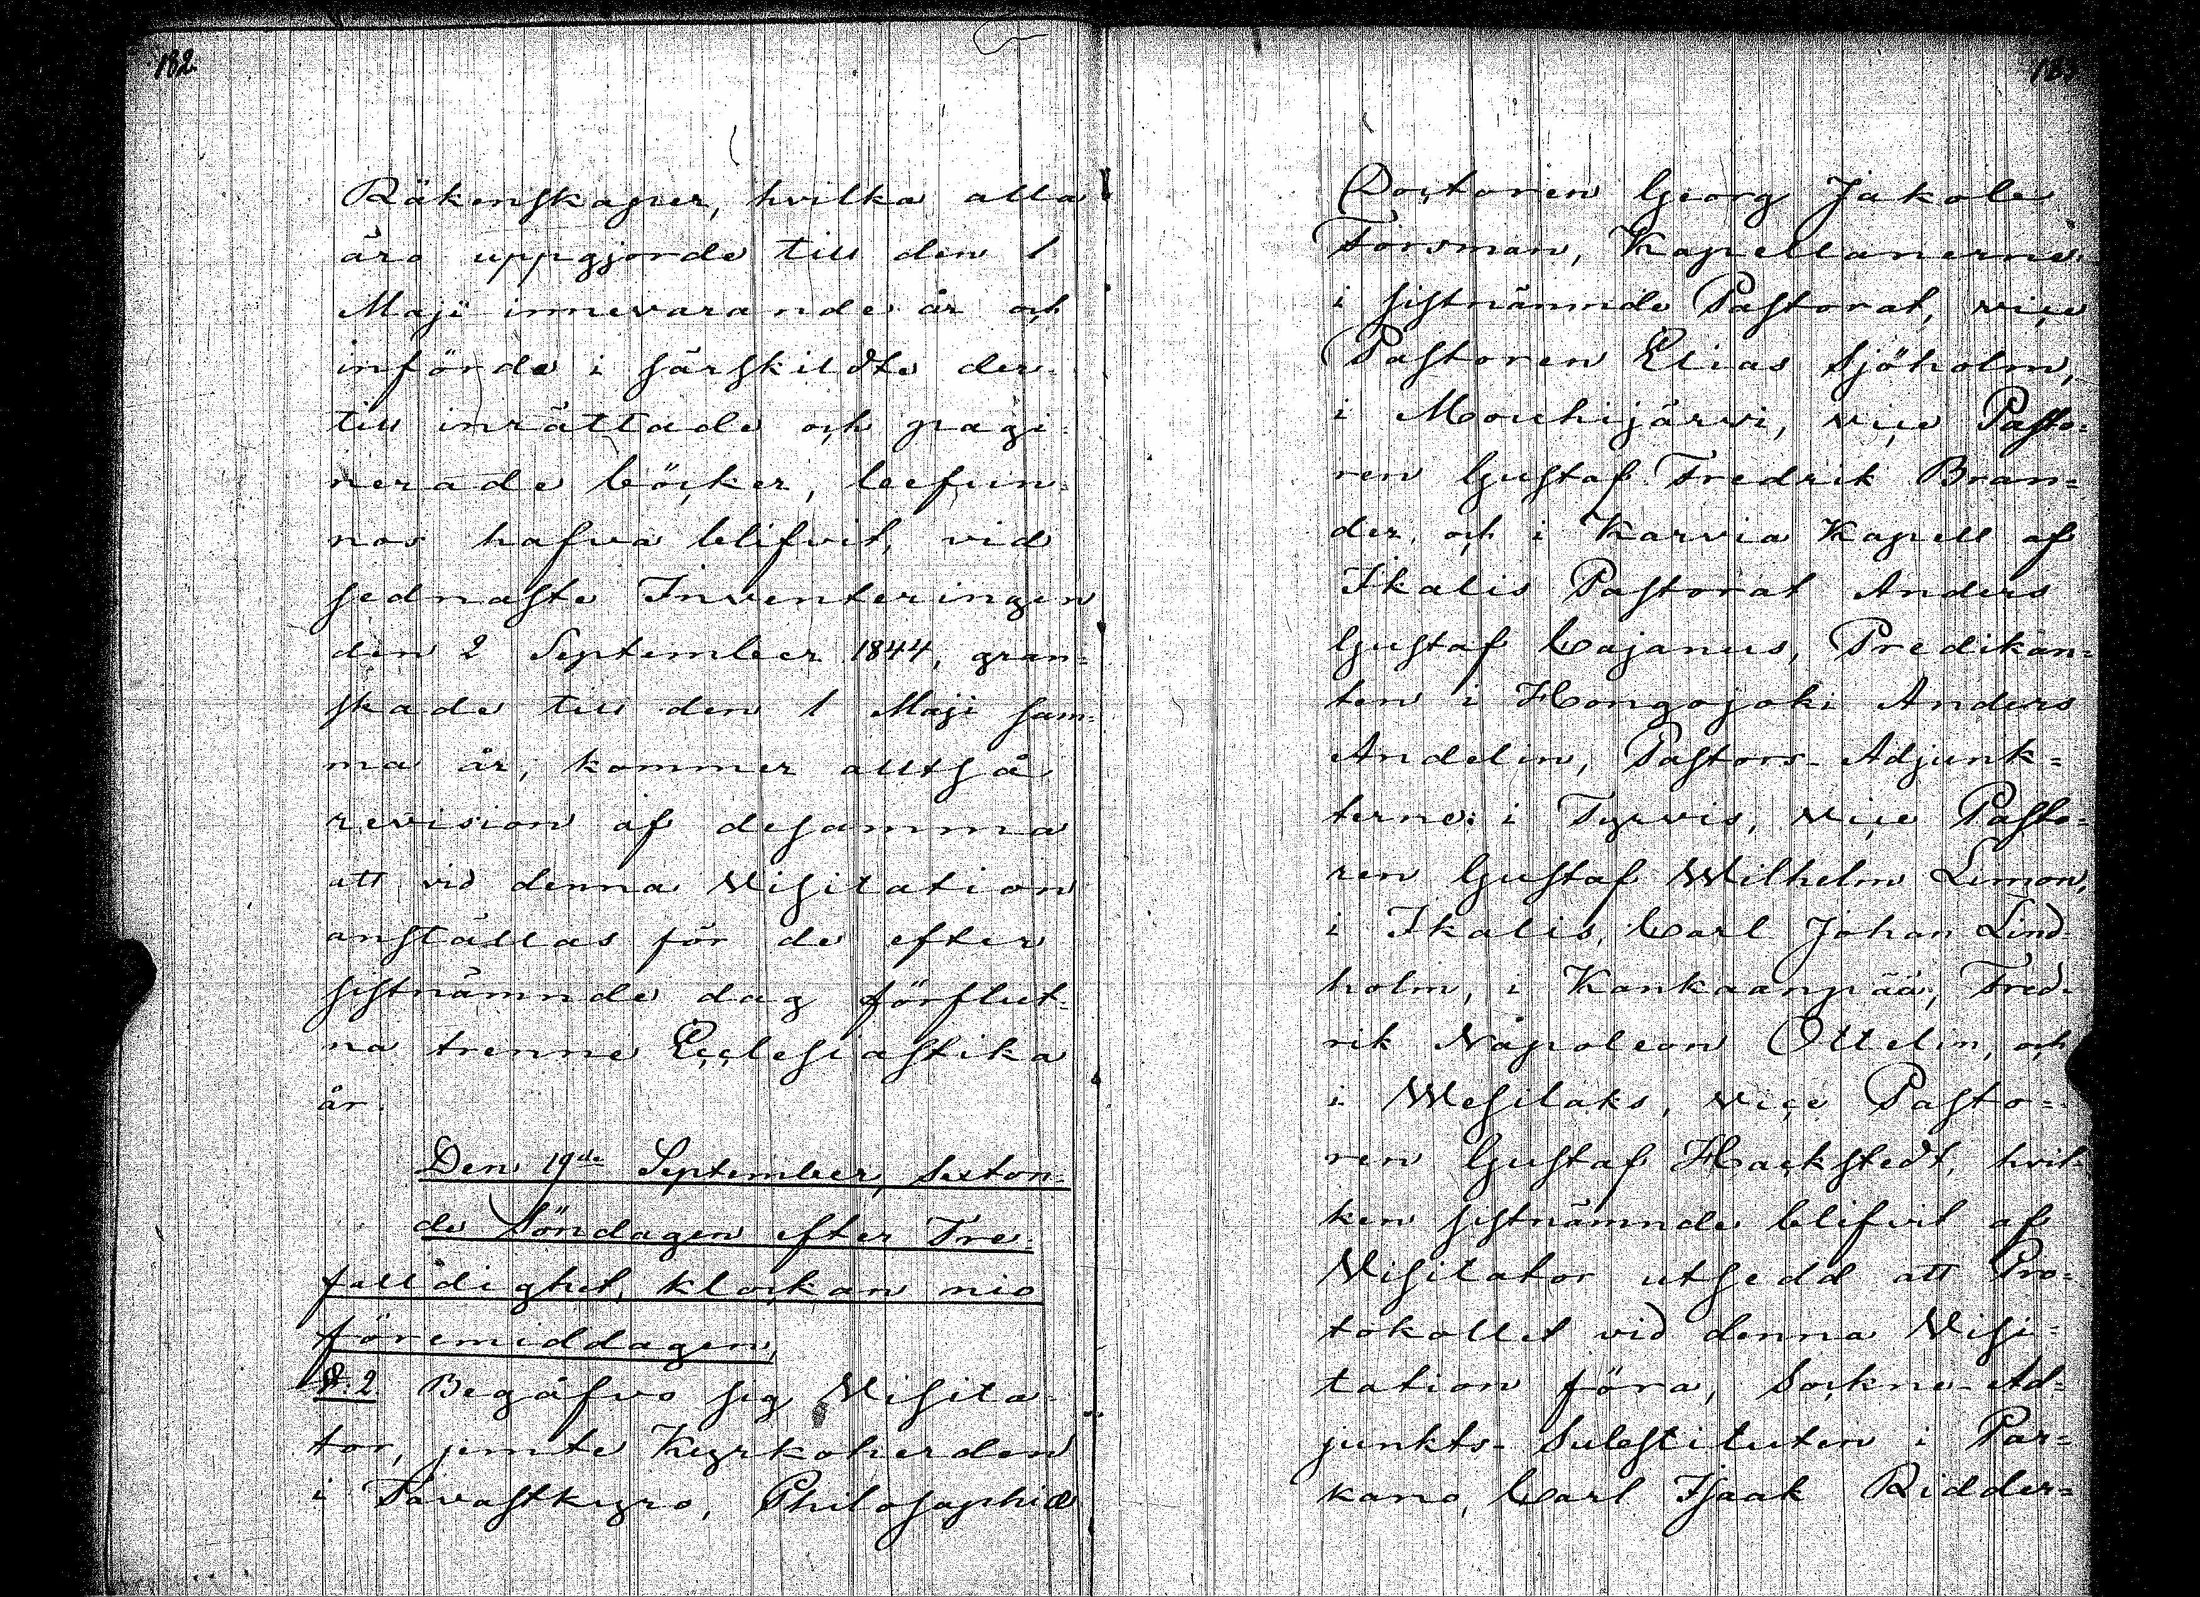 182.
Räkenskaper, hvilka alla
äro uppgjorde till den 1
Maji innevarande år och
införde i särskildte der-
till inrättade och pagi-
nerade böcker, befun-
nos hafva blifvit, vid
sednaste Inventeringen
den 2 September 1844, gran-
skade till den 1 Maji sam-
ma år, kommer alltså
revision af desamma
att vid denna Visitation
anställas för de efter
sistnämnde dag förflut-
na trenne Ecclesiastika
år.
Den 19de September, Sexton-
de Söndagen efter Tre-
falldighet, klockan nio
föremiddagen,
§. 2. Begåfvo sig Visita-
tor, jemte Kyrkoherden
i Tavastkyro, Philosophiæ
Doctoren Georg Jakob
Forsman, Kapellanerne:
i sistnämnde Pastorat, vice
Pastoren Elias Sjöholm,
i Mouhijärvi, vice Pasto-
ren Gustaf Fredrik Bran-
der, och i Karvia Kapell af
Ikalis Pastorat Anders
Gustaf Cajanus, Predikan-
ten i Hongojoki Anders
Andelin, Pastors-Adjunk-
terne: i Tyrvis, vice Pasto-
ren Gustaf Wilhelm Limon,
i Ikalis, Carl Johan Lind-
holm, i Kankaanpää, Fred-
rik Napoleon Ottelin, och
i Wesilaks, vice Pasto-
ren Gustaf Hackstedt, hvil-
ken sistnämnde blifvit af
Visitator utsedd att Pro-
tokollet vid denna Visi-
tation föra, Sockne-Ad-
junkts-Substituten i Par-
kano, Carl Isaak Ridder-